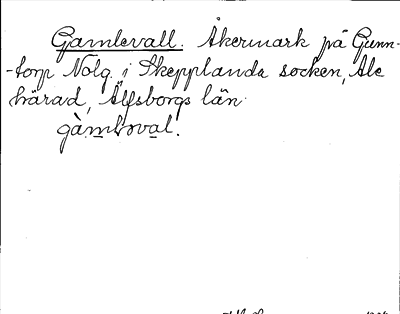 Gamlevall. Åkermark på Gunn-
-torp Nolg. i Skepplanda socken, Ale
härad, Älfsborgs län.
gàmləval.